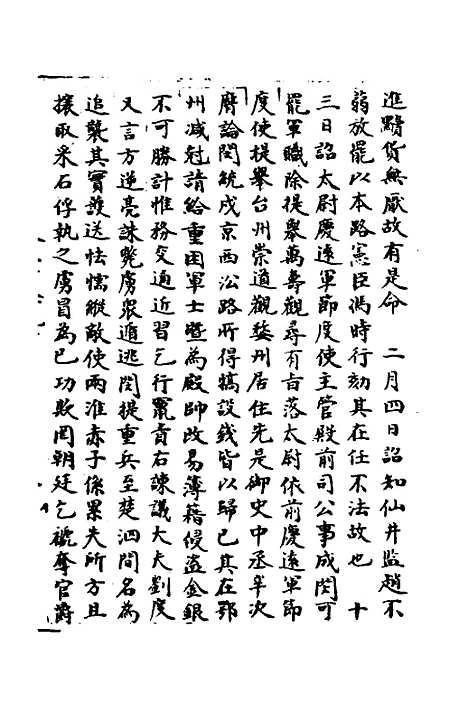 進黷貨無厭故有是命　二月四日詔知仙井監趙不
弱放罷以本路憲臣馮時行劾其在任不法故也　十
三日詔太尉慶遠軍節度使主管殿前司公事成閔可
罷軍職除提舉萬壽觀尋有旨落太尉依前慶遠軍節
度使提舉台州崇道觀婺州居住先是御史中丞辛次
膺論閔統戍京西沿路所得犒設錢皆以歸已其在鄂
州减尅請給重困軍士暨為殿帥改易簿藉侵盗金銀
不可勝計惟務交通近習乞行竄責右諫議大夫劉度
又言方逆亮誅斃虜衆遁逃閔提重兵至楚泗間名為
追襲其實護送怯懦縱敵使兩淮赤子係累失所方且
攘取采石俘執之虜冒為已功欺罔朝廷乞褫奪官爵